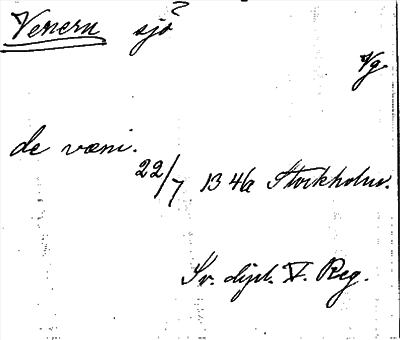 Venern sjö
Vg
de væni.
22/7 1346 Stockholm.
Sv. dipl. V. Reg.